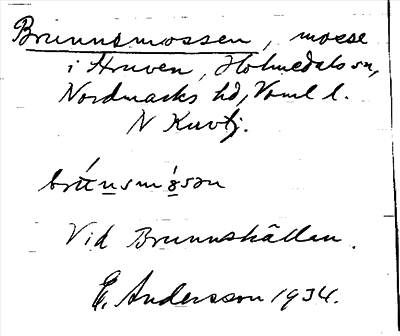 Brunnsmossen, mosse
i Hruven, Holmedals sn,
Nordmarks hd, Vrml l.
N Kuvtj.
Vid Brunnskällan.
E. Andersson 1934.